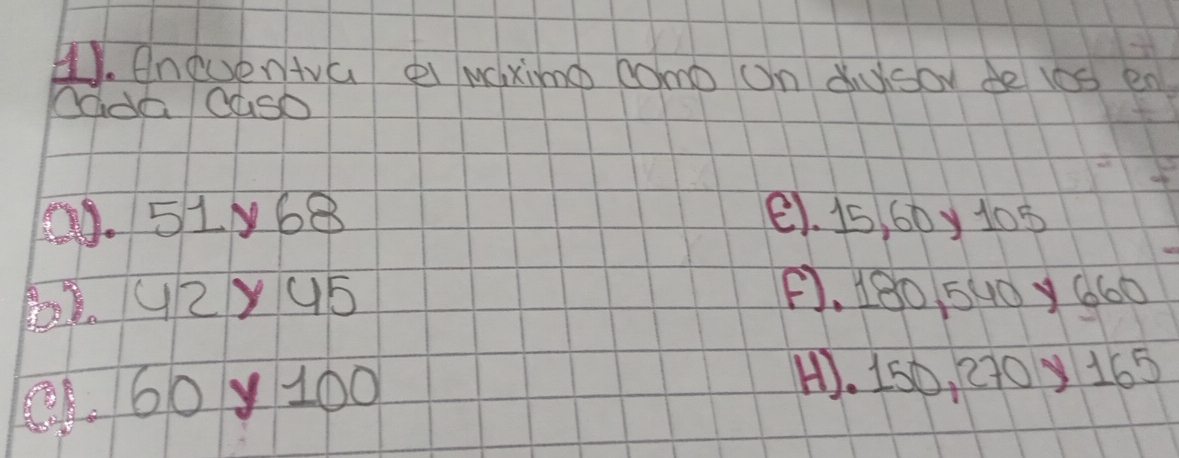 1). Encuentra el maximo como un divisor de los en
cada caso
a). 51 y 68
b). 42 y 45
c). 60 y 100
E). 15, 60 y 105
F). 180, 540 y 660
H). 150, 270 y 165